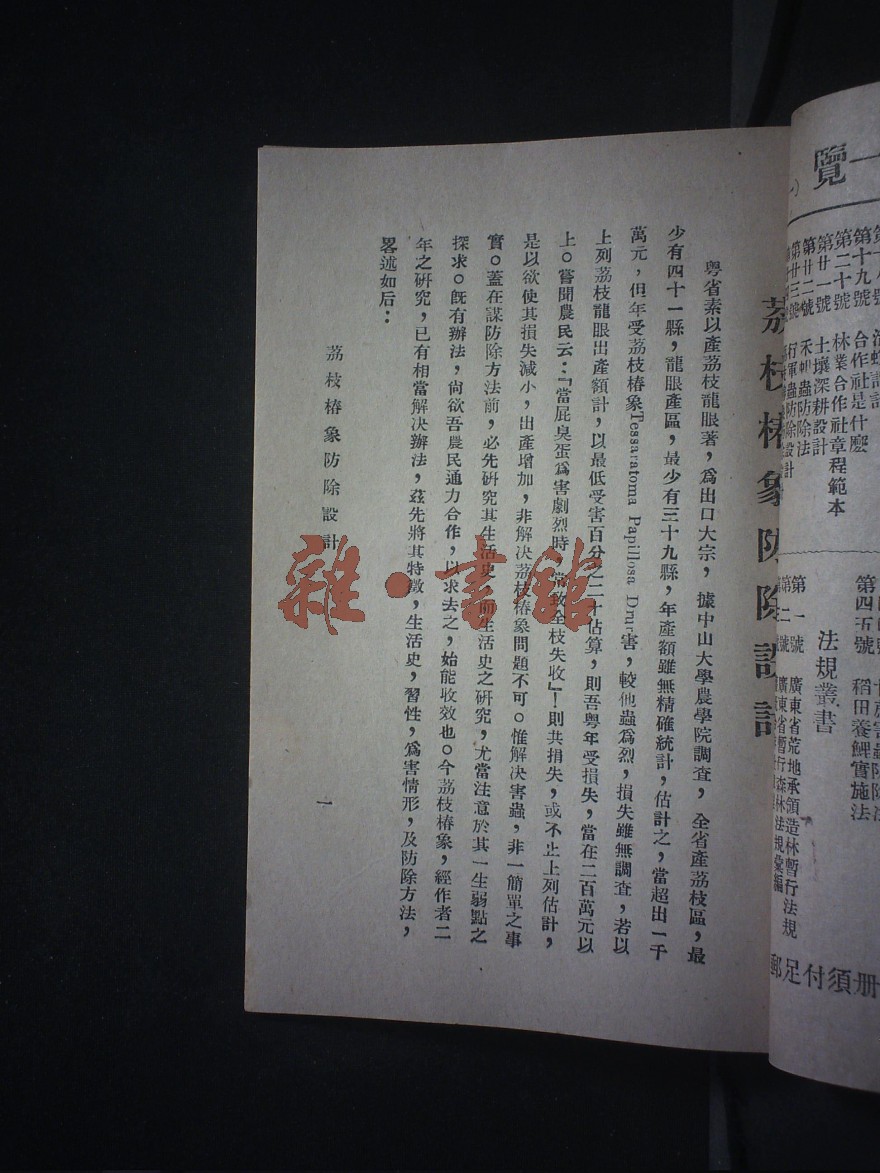 覽一
第十九號 合作社是什麼
第二十號 林業合作社章程範本
第廿一號 土壤深耕設計
第廿二號 禾蟲防除法
第廿三號 行軍蟲防除設計
第四五號 稻田養鯉實施法
法規叢書
第一號 廣東省荒地承領造林暫行法規
第二號 廣東省暫行森林法規彙編
郵足付須册
荔枝椿象防除設計
粤省素以產荔枝龍眼著，爲出口大宗，據中山大學農學院調查，全省產荔枝區，最
少有四十一縣，龍眼產區，最少有三十九縣，年產額雖無精確統計，估計之，當超出一千
萬元，但年受荔枝椿象Tessaratoma Papillosa Drur害，較他蟲爲烈，損失雖無調查，若以
上列荔枝龍眼出產額計，以最低受害百分之二十估算，則吾粤年受損失，當在二百萬元以
上。嘗聞農民云：「當屁臭蛋爲害劇烈時，常致全枝失收」！則其損失，或不止上列估計，
是以欲使其損失減小，出產增加，非解決荔枝椿象問題不可。惟解決害蟲，非一簡單之事
實。蓋在謀防除方法前，必先研究其生活史，而生活史之研究，尤當注意於其一生弱點之
探求。旣有辦法，尙欲吾農民通力合作，以求去之，始能收效也。今荔枝椿象，經作者二
年之研究，已有相當解決辦法，茲先將其特徵，生活史，習性，爲害情形，及防除方法，
畧述如后：
荔枝椿象防除設計
一
雜·書館